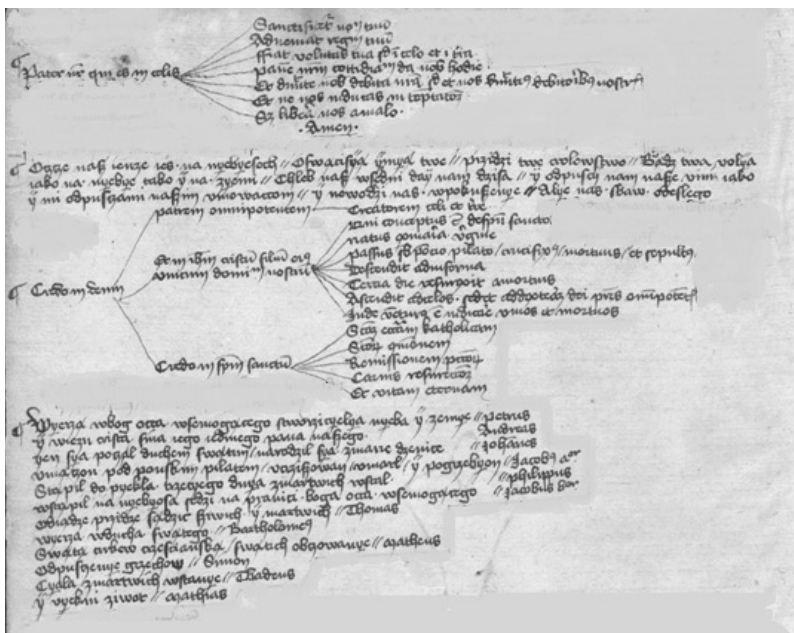 Sanctificet² no² tuū
Adueniat regnū tuū
ffiat voluntas tua sic ī celo et ī tīra
Pater nr̄ qui es in celis
panē nrm̄ cottidianū da nob hodie
Et dimitte nob debita nrā sic et nos dimittim9 debitorib9 nostris
Et ne nos inducas in temptatōē
Sz libera nos amalo
Amen
Otcze nasch ienze ies na nyebyesoch // Oswanczsya ymya twe // przidzi twe crolewstwo // Bądz twa volya
iako na nyebye tako y na zyemi // Chleb nasch wsedni day nam dzisa // y odpusci nam nasze vini iako
y mi odpusczami naszim vinowaczom // y nowodzi nas wpokuszenye // Alye nas sbaw odeslego
patrem omnipotentem
Creatorem celi et tīre
Et in ihm̄ cristū filiū ei9
vnicum dominū nostrū
qui conceptus ē despū sancto
natus exmaria vgine
passus sb pōcio pilato / crucifix9 / mortuus / et sepult9
Descendit adinferna
Tercia die resurrexit amortuis
Credo in deum
Ascendit adcelos sedet addextera dei pris omnipotētis
Inde ventur9 ē iudicare viuos et mortuos
Scam ecclām katholicam
Credo in spm̄ sanctū
Remissionem pctōr
Carnis resurrectōē
Et vitam eternam
Wyerzą wbog otcza wsemogącego stworziczyelya nyeba y zemye // Petrus
y wiezu crista sina iego iedinego pana naszego // Andreas
yen sya począl duchem swatim / narodzil sya zmarie dzeuice // Johānes
vmączon pod ponskim pilatem / vcziszowan / vmarl / y pogrzebyon // Jacob9 aor
Stąpil do pyekla trzeczego dnya zmartwich wstal // philippus
wstąpil na nyebyosa sedzi na prawici boga otcza wsemogącego // Jacobus bor
Odtądze przidze sądzić szywich y martwich // Thomas
wyerzą wducha swątego // Bartholome9
Swąta cirkew czescianska / swątich obczowanye // Matheus
Odpusczenye grzechow // Simon
Cyala zmartwich wstanye // Thadeus
y vyekui ziwot // Mathias